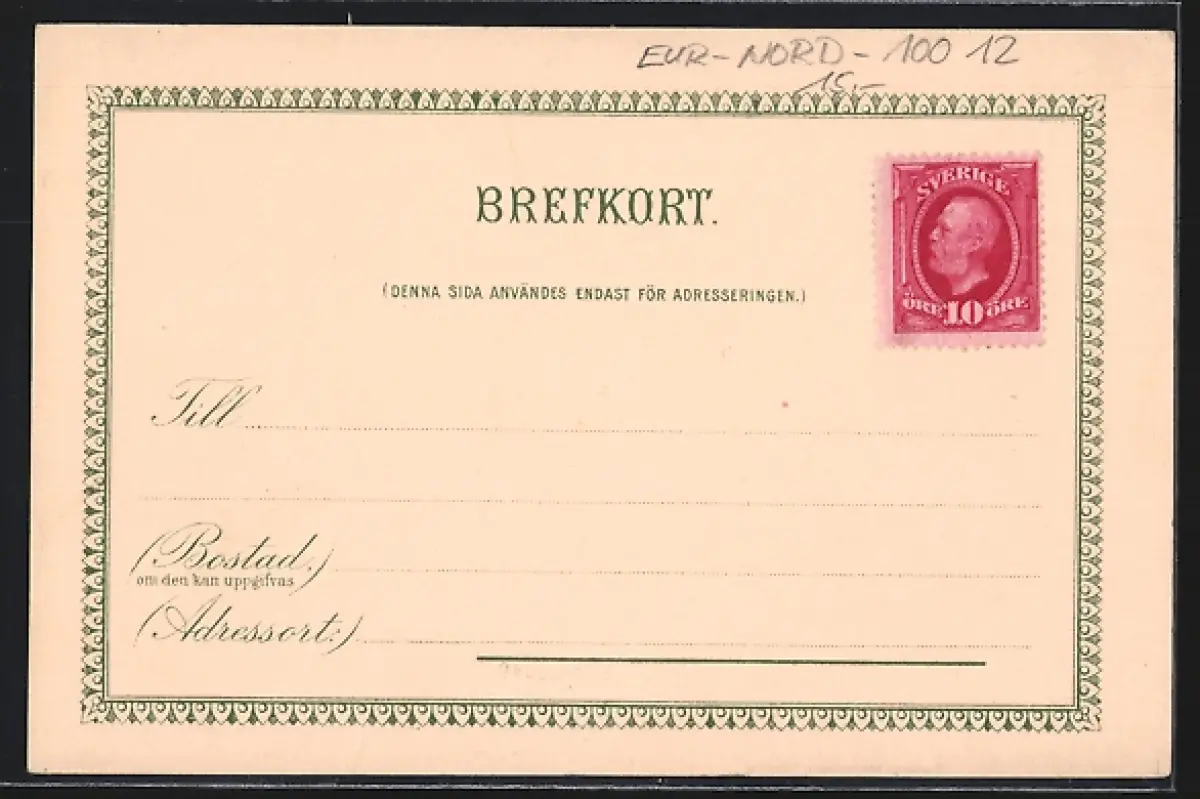 EUR-NORD-100 12
15,-
SVERIGE
ÖRE 10 ÖRE
BREFKORT.
(DENNA SIDA ANVÄNDES ENDAST FÖR ADRESSERINGEN.)
Till
(Bostad.)
om den kan uppgifvas
(Adressort:)